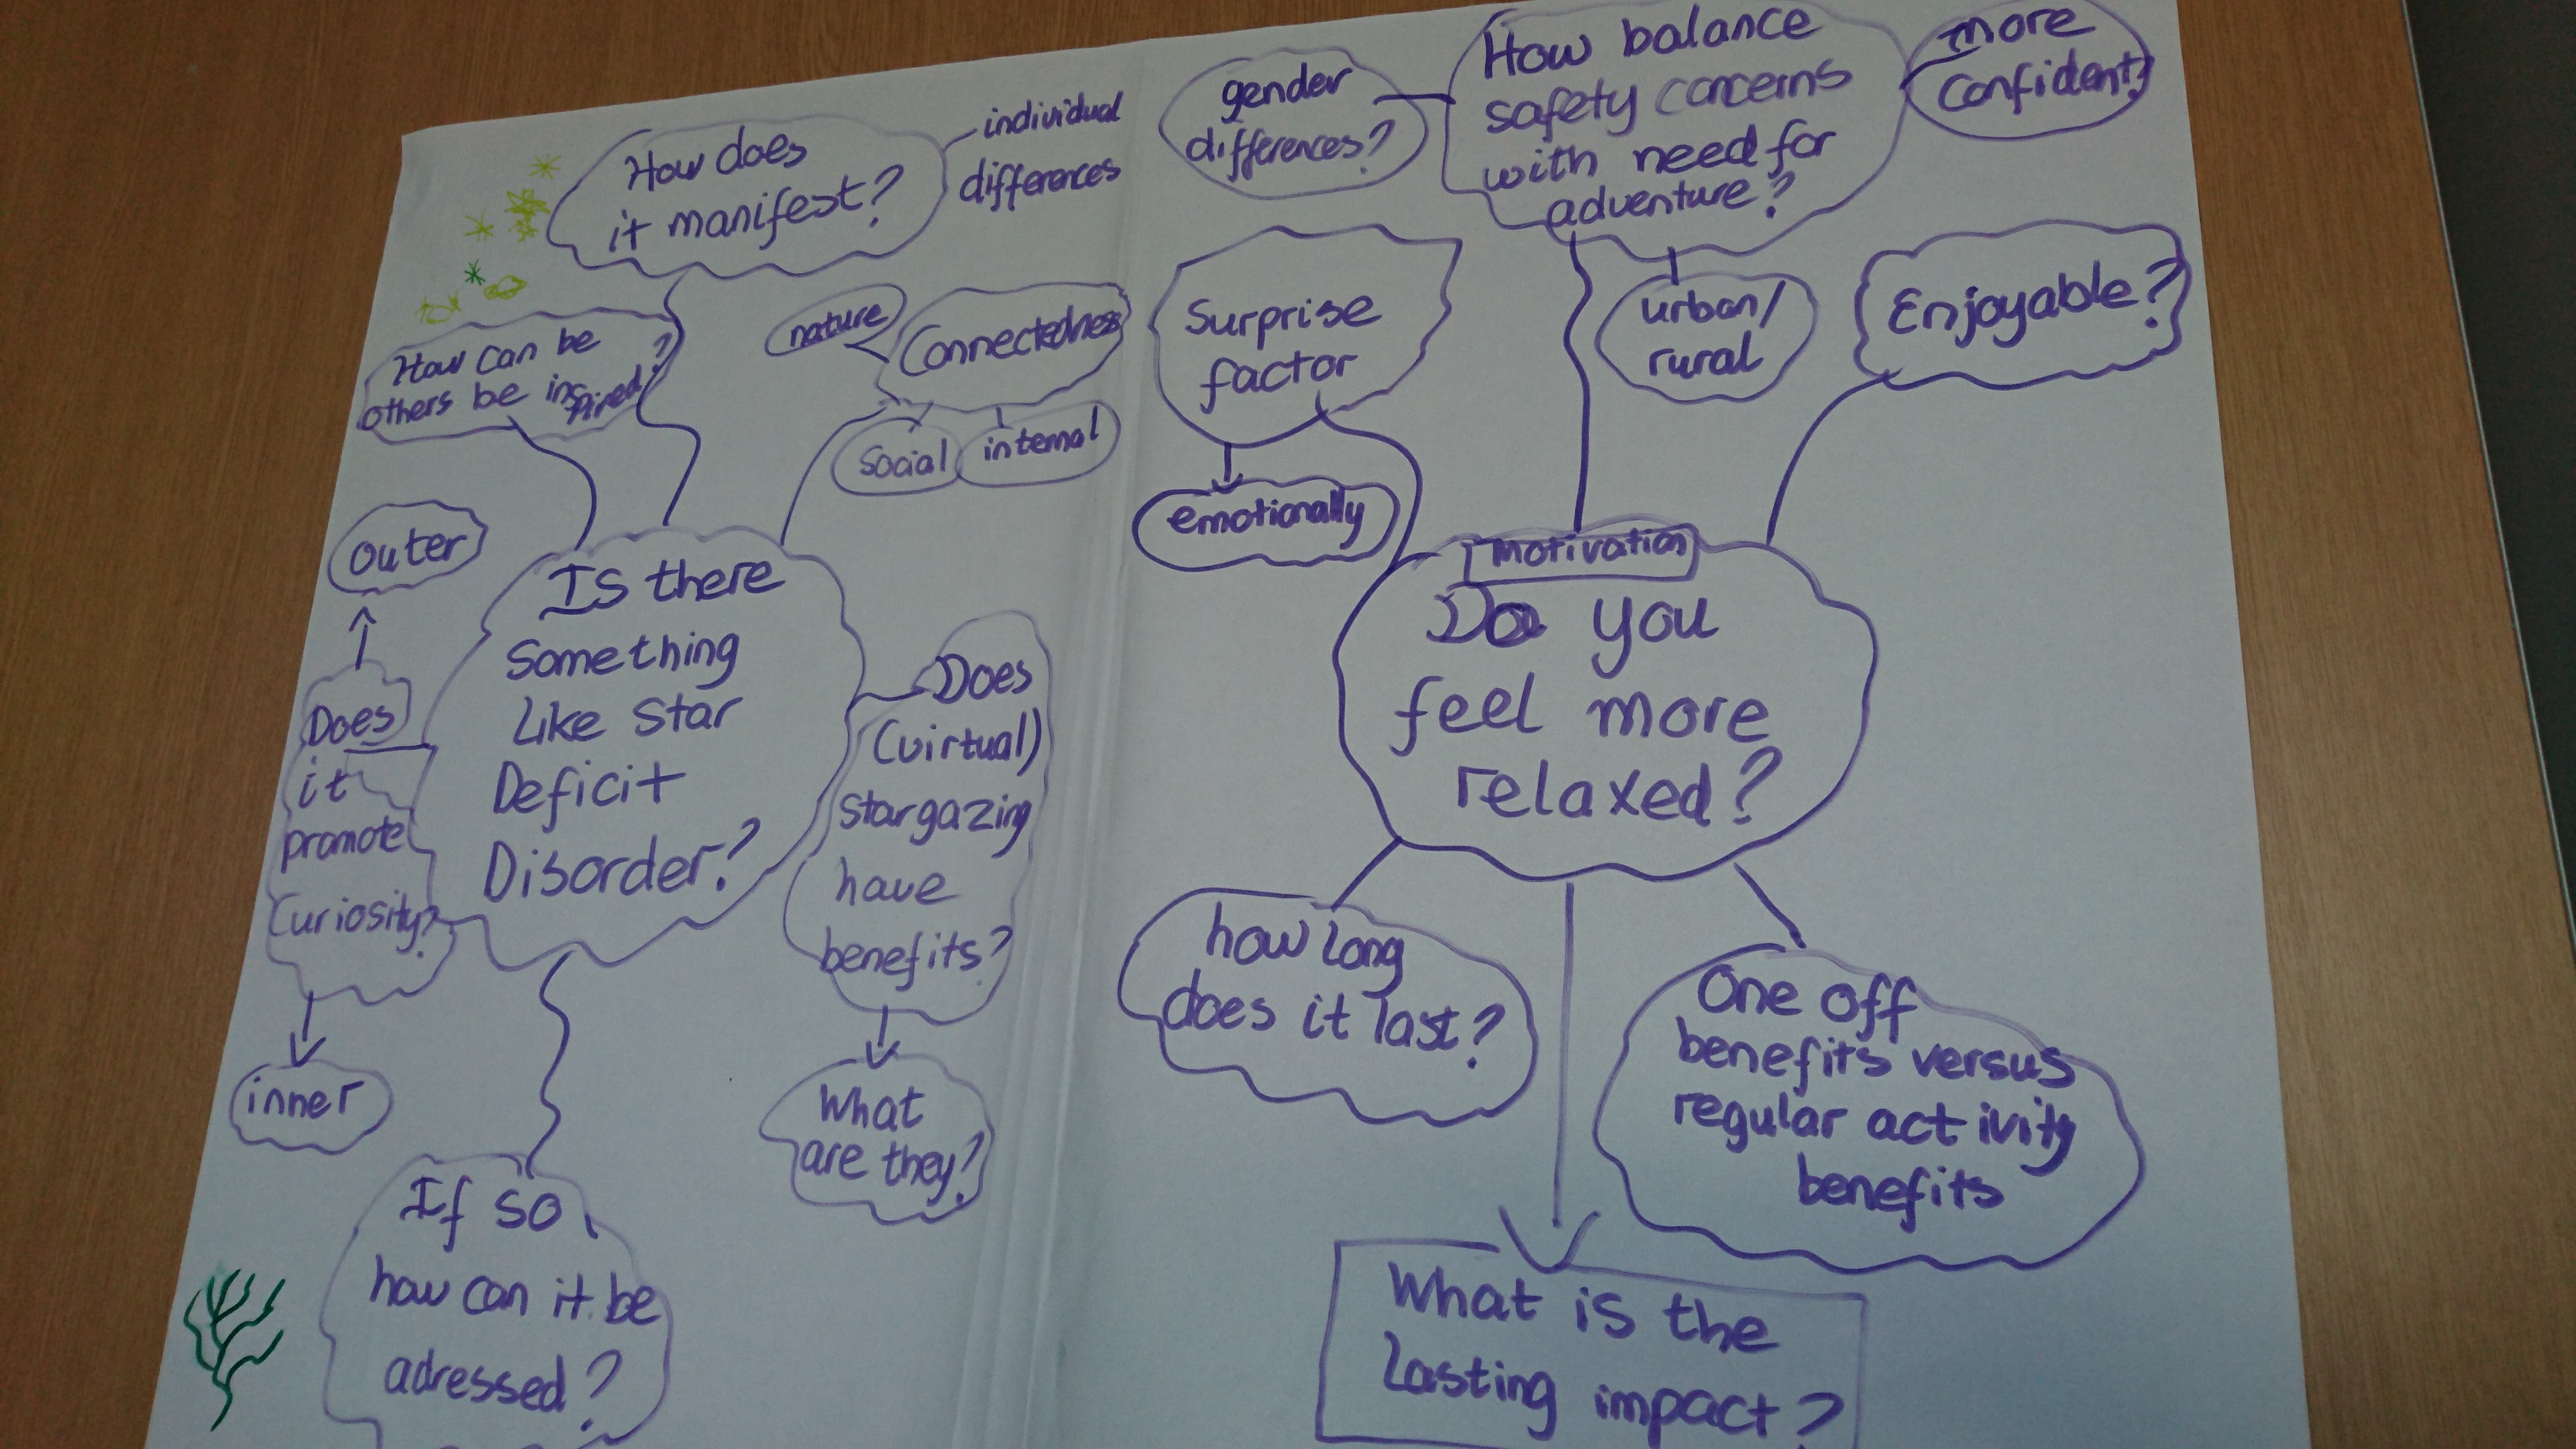 How does
it manifest?
individual
differences
How can be
others be inspired?
nature
Connectedness
Social
internal
outer
Does
it
promote
Curiosity?
inner
Is there
Something
Like Star
Deficit
Disorder?
Does
(virtual)
stargazing
have
benefits?
What
are they?
If so
how can it be
adressed?
gender
differences?
How balance
safety concerns
with need for
adventure?
more
Confident?
Surprise
factor
emotionally
urban/
rural
Enjoyable?
Motivation
Do you
feel more
relaxed?
how long
does it last?
One off
benefits versus
regular activity
benefits
What is the
Lasting impact?